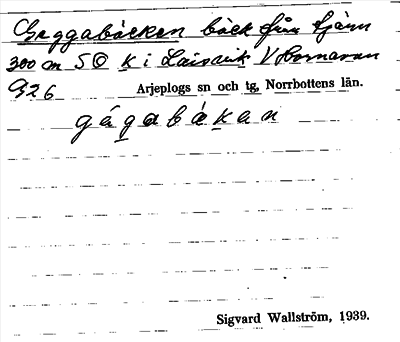 Gaggabäcken bäck från tjärn
300 m SO K i Laisvik V Hornavan
G26
Arjeplogs sn och tg, Norrbottens län.
gágabäkan
Sigvard Wallström, 1939.